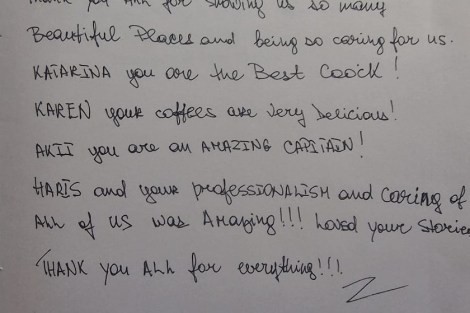 Thank you ALL for showing us so many
Beautiful Places and being so caring for us.
KATARINA you are the Best Coock!
KAREN your coffees are very Delicious!
AKII you are an AMAZING CAPITAIN!
HARIS and your professIONALISM and caring of
ALL of US was Amazing!!! Loved your stories
THANK you ALL for everything!!!